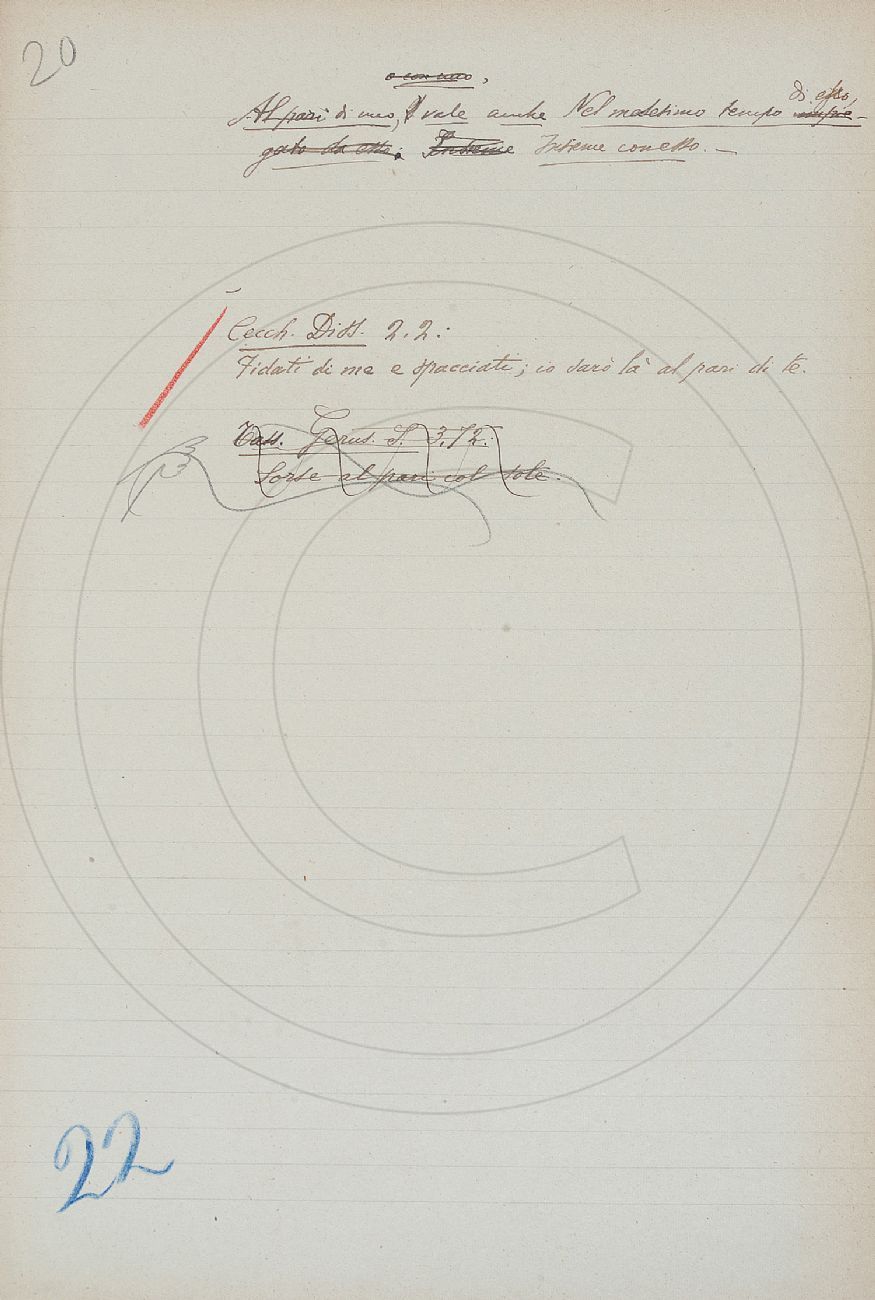 20
o con uno,
Al pari di uno, vale anche Nel medesimo tempo di esso, impie-
gato da esso; Insieme Insieme con esso. —
Cecch. Diss. 2. 2.:
Fidati di me e spacciati; io sarò là al pari di te.
Tass. Gerus. 3. 72.:
Sorse al pari col sole.
22